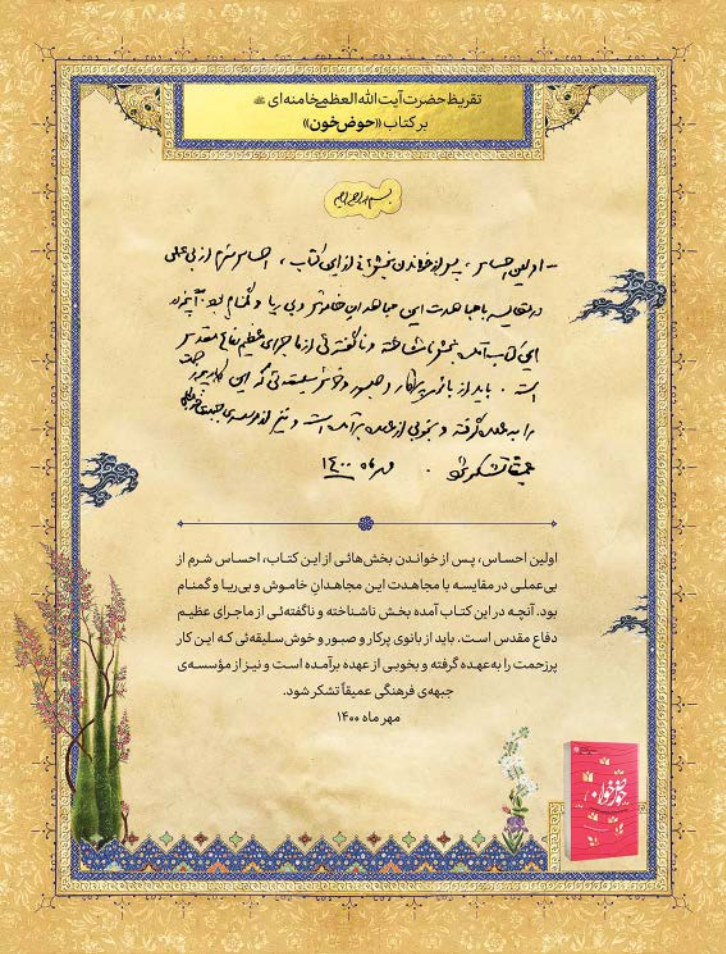 تقریظ حضرت آیت‌الله العظمی خامنه‌ای
بر کتاب «حوض خون»
بسم الله الرحمن الرحیم
- اولین احساس، پس از خواندن بخشهائی از این کتاب، احساس شرم از بی‌عملی
در مقایسه با مجاهدت این مجاهدان خاموش و بی ریا و گمنام بود. آنچه در
این کتاب آمده بخش ناشناخته و ناگفته‌ئی از ماجرای عظیم دفاع مقدس
است. باید از بانوی پرکار و صبور و خوش سلیقه‌ئی که این کار پرزحمت
را به عهده گرفته و بخوبی از عهده برآمده است و نیز از مؤسسه‌ی جبهه‌ی فرهنگی
عمیقاً تشکر شود. مهر ماه ۱۴۰۰
اولین احساس، پس از خواندن بخش‌هائی از این کتاب، احساس شرم از
بی‌عملی در مقایسه با مجاهدت این مجاهدانِ خاموش و بی‌ریا و گمنام
بود. آنچه در این کتاب آمده بخش ناشناخته و ناگفته‌ئی از ماجرای عظیم
دفاع مقدس است. باید از بانوی پرکار و صبور و خوش‌سلیقه‌ئی که این کار
پرزحمت را به‌عهده گرفته و بخوبی از عهده برآمده است و نیز از مؤسسه‌ی
جبهه‌ی فرهنگی عمیقاً تشکر شود.
مهر ماه ۱۴۰۰
حوض خون